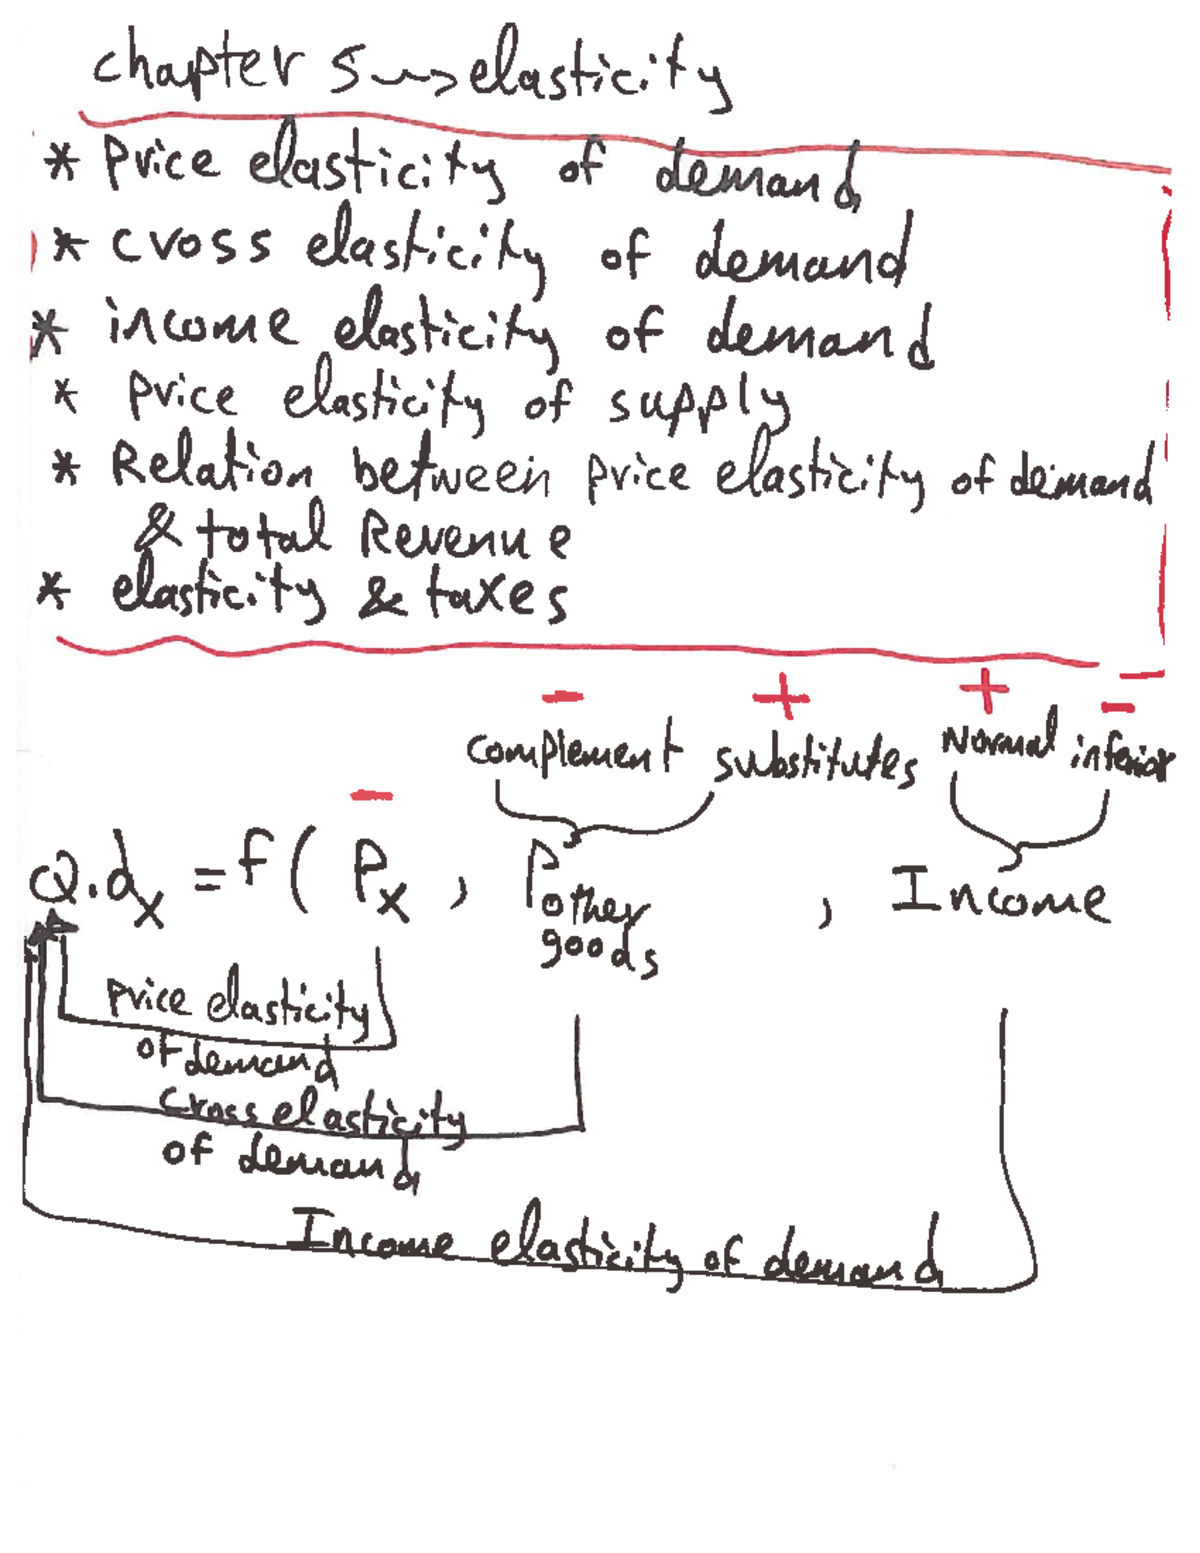 chapter 5 ⇝ elasticity
* Price elasticity of demand
* cross elasticity of demand
* income elasticity of demand
* Price elasticity of supply
* Relation between price elasticity of demand
& total Revenue
* elasticity & taxes
- + + -
complement substitutes Normal inferior
-
Q.dx = f ( Px , Pother goods , Income
Price elasticity
of demand
cross elasticity
of demand
Income elasticity of demand